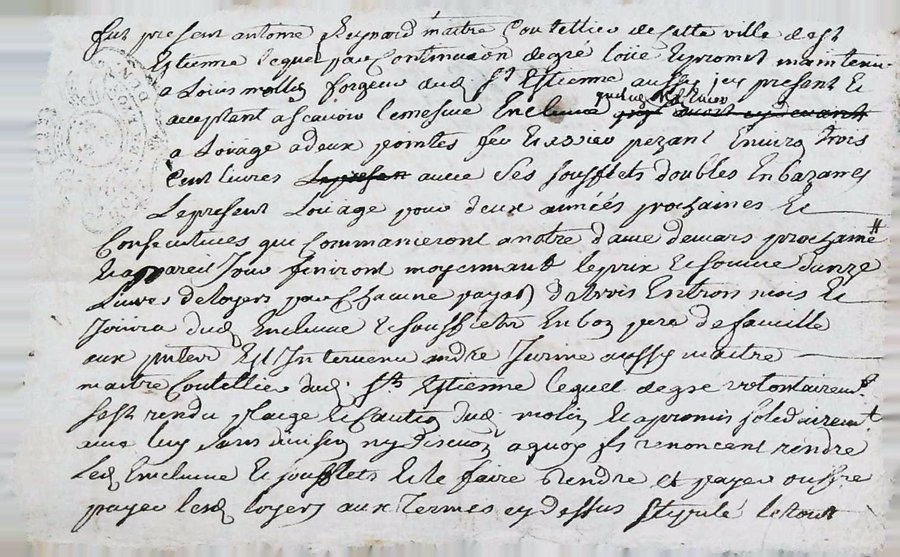 fut present antoine Reynard maitre Coutellier de cette ville de st
Estienne lequel par Continuation de gre loue et promet maintenir
a Louis mollin forgeur dud. st Estienne aussy icy present et
acceptant a scavoir la mesme Enclume
a Louage a deux pointes fer et assier pezant Environ trois
Cent livres Le presen avec Ses soufflets doubles En bazanes
Le present Louage pour deux années prochaines et
Consecutives qui Commanceront a notre dame de mars prochaine
et a pareil Jour finiront moyennant le prix et somme d'onze
Livres de loyers par Chacune payab de trois En trois mois et
Jouira dud. Enclume et soufflets En bon pere de famille
aux Est Intervenu andré Jurine aussy maitre
maitre Coutellier dud. st Estienne lequel de gre volontairemt
sest rendu plaige et Caution dud. molin et a promis solidairemt
avec luy sans division ny discution a quoy ils renoncent rendre
Led Enclume et soufflets et le faire rendre et payer
payer lesd. loyers aux Termes cy dessus stipulé le tout